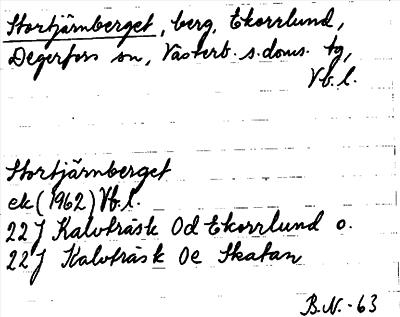 Stortjärnberget, berg, Ekorrlund,
Degerfors sn, Västerb. s. doms. tg,
Vb. l.
Stortjärnberget
ek (1962) Vb. l.
22J Kalvträsk 0d Ekorrlund o.
22J Kalvträsk 0e Skatan
B.N. -63